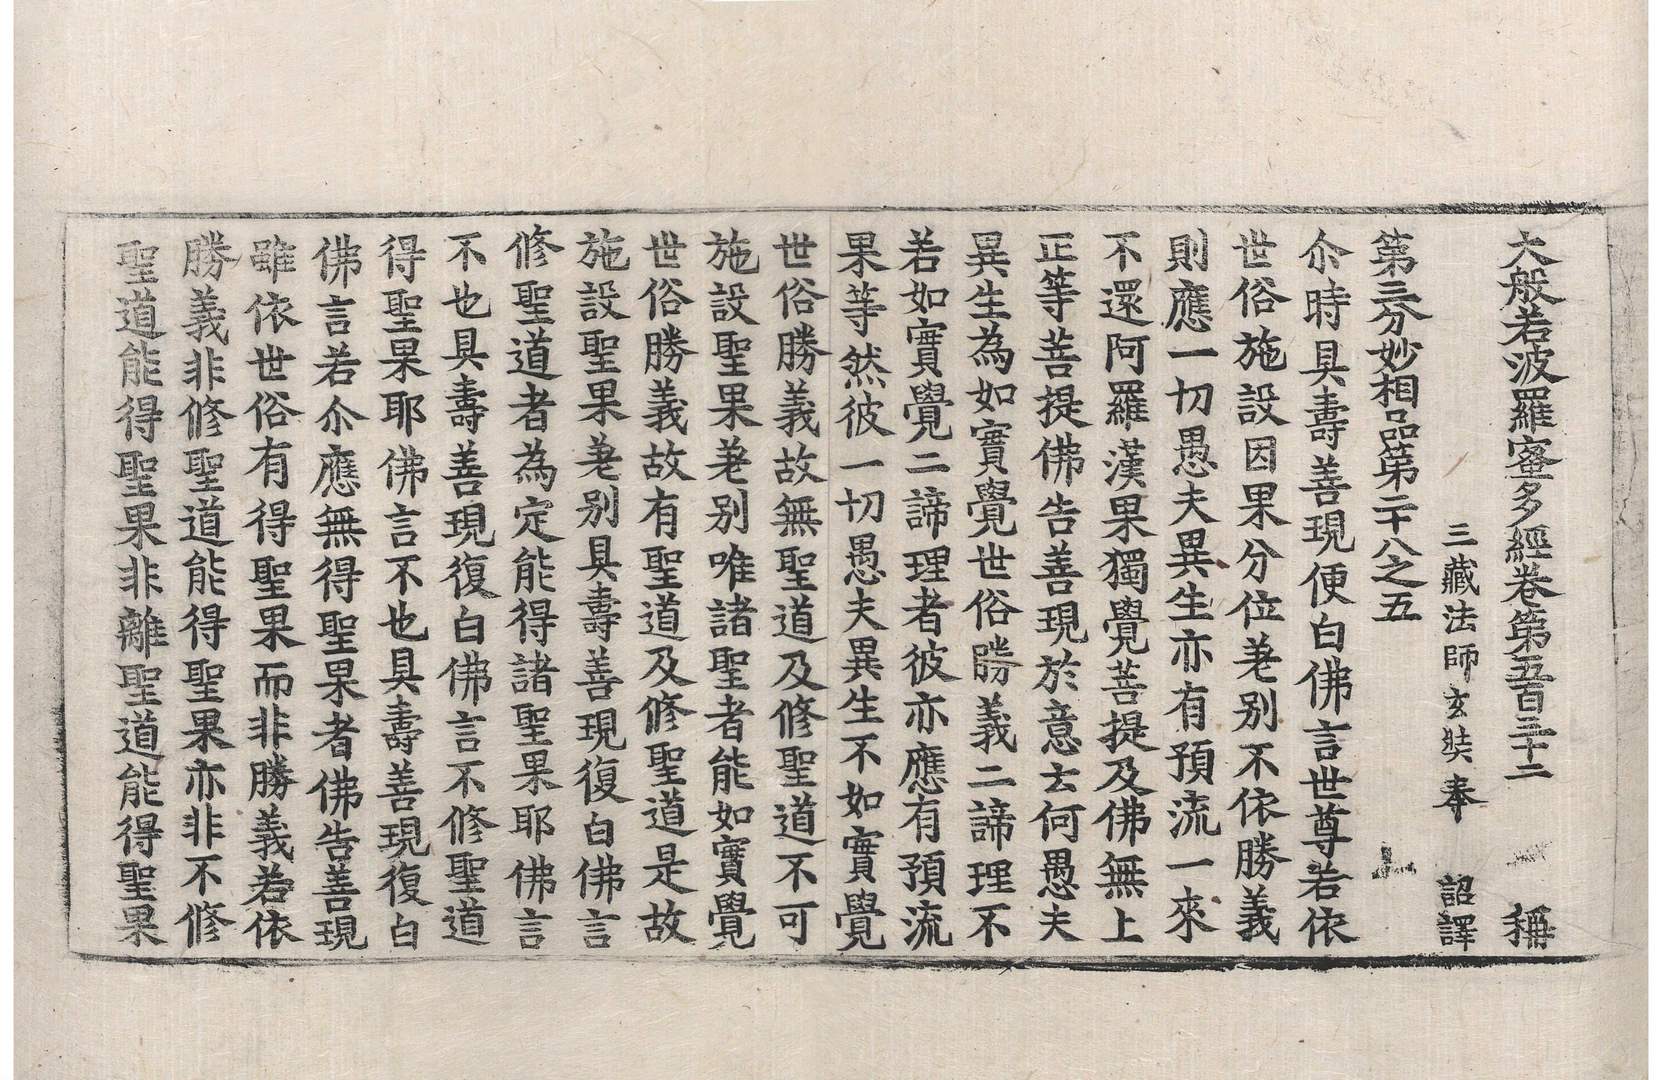 大般若波羅蜜多經卷第五百三十二 稱
三藏法師玄奘奉 詔譯
第三分妙相品第二十八之五
尒時具壽善現便白佛言世尊若依
世俗施設因果分位差別不依勝義
則應一切愚夫異生亦有預流一來
不還阿羅漢果獨覺菩提及佛無上
正等菩提佛告善現於意云何愚夫
異生為如實覺世俗勝義二諦理不
若如實覺二諦理者彼亦應有預流
果等然彼一切愚夫異生不如實覺
世俗勝義故無聖道及修聖道不可
施設聖果差別唯諸聖者能如實覺
世俗勝義故有聖道及修聖道是故
施設聖果差別具壽善現復白佛言
修聖道者為定能得諸聖果耶佛言
不也具壽善現復白佛言不修聖道
得聖果耶佛言不也具壽善現復白
佛言若尒應無得聖果者佛告善現
雖依世俗有得聖果而非勝義若依
勝義非修聖道能得聖果亦非不修
聖道能得聖果非離聖道能得聖果